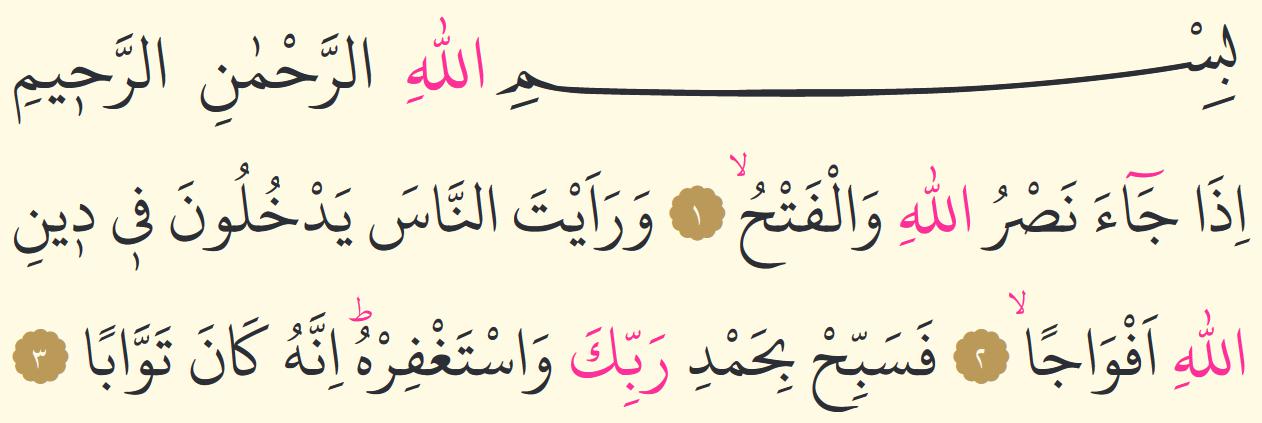 بِسْمِ اللّٰهِ الرَّحْمٰنِ الرَّحٖيمِ
اِذَا جَٓاءَ نَصْرُ اللّٰهِ وَالْفَتْحُۙ ١ وَرَاَيْتَ النَّاسَ يَدْخُلُونَ فٖى دٖينِ
اللّٰهِ اَفْوَاجًاۙ ٢ فَسَبِّحْ بِحَمْدِ رَبِّكَ وَاسْتَغْفِرْهُؕ اِنَّهُ كَانَ تَوَّابًا ٣